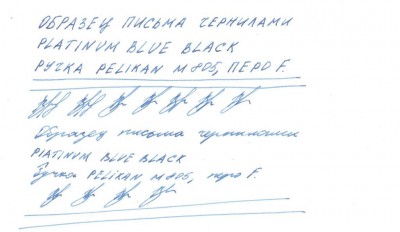 ОБРАЗЕЦ ПИСЬМА ЧЕРНИЛАМИ
PLATINUM BLUE BLACK
РУЧКА PELIKAN M 805, ПЕРО F.
Образец письма чернилами
PLATINUM BLUE BLACK
Ручка PELIKAN M 805, перо F.